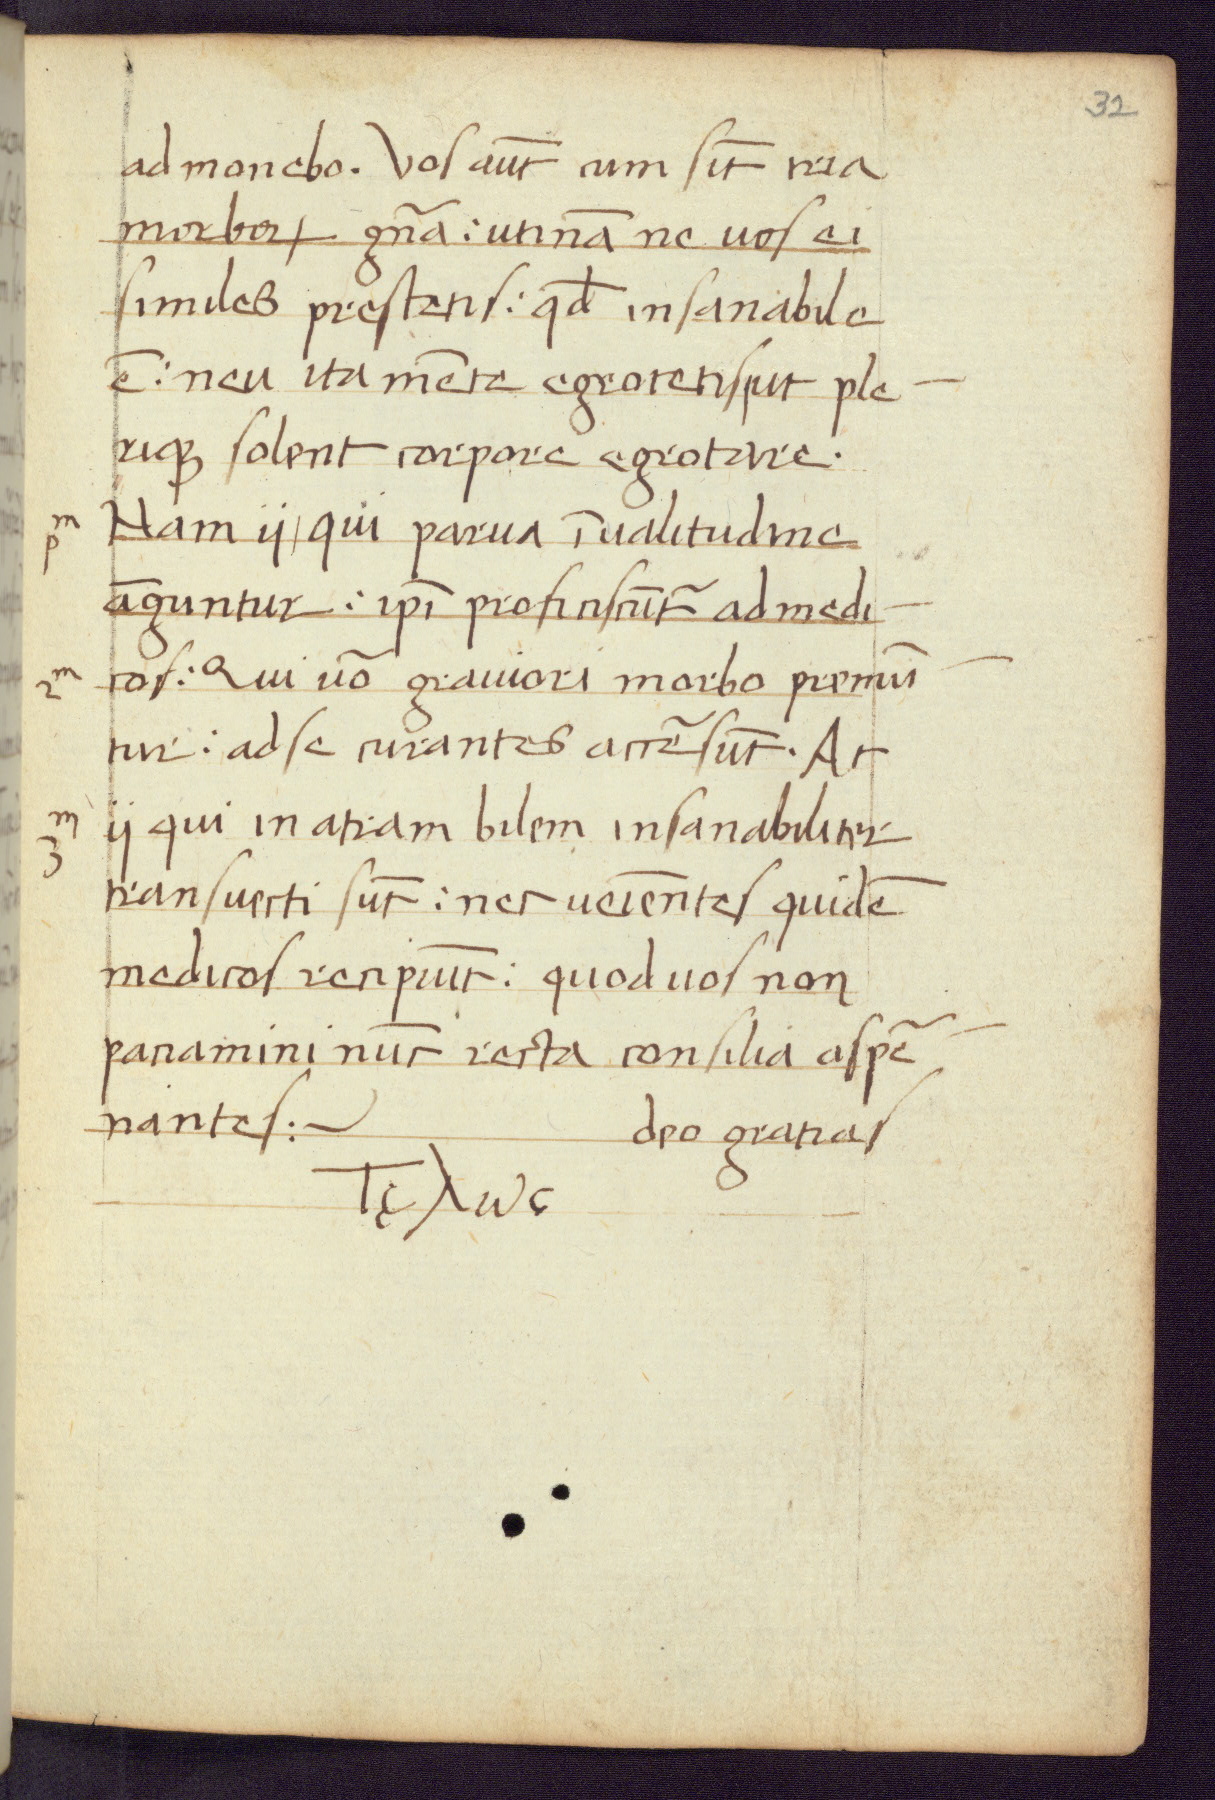 32
admonebo. Vos aut̄ cum sīt tria
morboꝝ gn̄a: utinā ne uos ei
similes prestetis: qđ insanabile
ē: neu ita mēte egrotetis put ple-
riqꝫ solent corpore egrotare.
pm Nam ij, qui parua ī ualitudine
āguntur: ipī proficiscūt᷑ ad medi-
2m cos: Qui uō grauiori morbo premūn-
tur: ad se curantes accēsūt. At
3m ij qui in atram bilem insanabiliter
transuecti sūt: nec ueīentes quidē
medicos recipiūt: quod uos non
paciamini nūc recta consilia aspē-
nantes:~ deo gratias
Τέλως